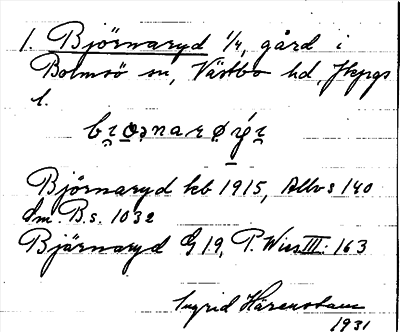 1. Björnaryd 1/4, gård i
Bolmsö sn, Västbo hd, Jkpgs
l.
Björnaryd kb 1915, Allvs 140
dm. B.s. 1032
Bjärnaryd G 19, P. Wies III: 163
Ingrid Harenstam
1931